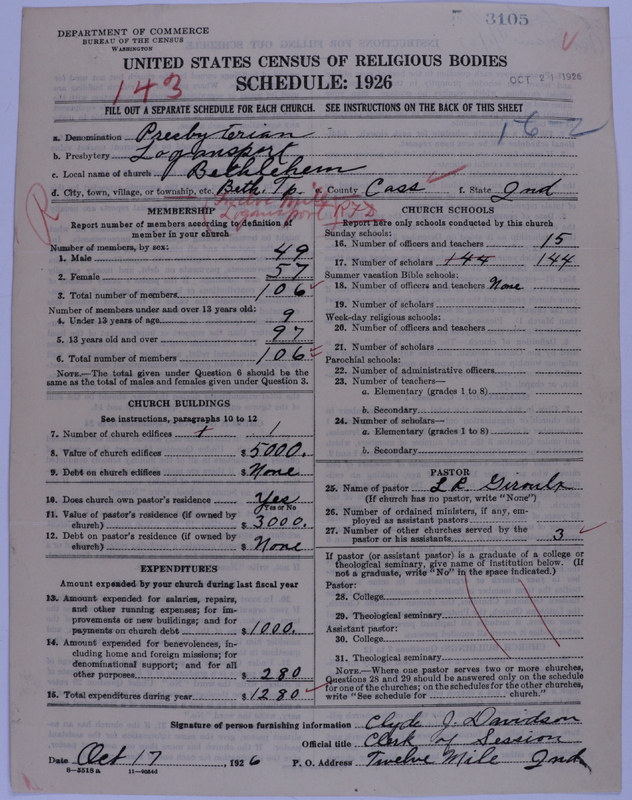 3105
DEPARTMENT OF COMMERCE
BUREAU OF THE CENSUS
WASHINGTON
UNITED STATES CENSUS OF RELIGIOUS BODIES
SCHEDULE: 1926
OCT 21 1926
143
FILL OUT A SEPARATE SCHEDULE FOR EACH CHURCH. SEE INSTRUCTIONS ON THE BACK OF THIS SHEET
16-2
a. Denomination Presbyterian
b. Presbytery Logansport
c. Local name of church Bethlehem
d. City, town, village, or township, etc. Beth. Tp. e. County Cass f. State Ind
Twelve Mile
Logansport RFD
R
MEMBERSHIP
Report number of members according to definition of member in your church
Number of members, by sex:
1. Male 49
2. Female 57
3. Total number of members 106
Number of members under and over 13 years old:
4. Under 13 years of age 9
5. 13 years old and over 97
6. Total number of members 106
NOTE.—The total given under Question 6 should be the same as the total of males and females given under Question 3.
CHURCH BUILDINGS
See instructions, paragraphs 10 to 12
7. Number of church edifices 1
8. Value of church edifices $ 5000.
9. Debt on church edifices $ None
10. Does church own pastor's residence Yes
Yes or No
11. Value of pastor's residence (if owned by church) $ 3000.
12. Debt on pastor's residence (if owned by church) $ None
EXPENDITURES
Amount expended by your church during last fiscal year
13. Amount expended for salaries, repairs, and other running expenses; for improvements or new buildings; and for payments on church debt $ 1000.
14. Amount expended for benevolences, including home and foreign missions; for denominational support; and for all other purposes $ 280
15. Total expenditures during year $ 1280
CHURCH SCHOOLS
Report here only schools conducted by this church
Sunday schools:
16. Number of officers and teachers 15
17. Number of scholars 144 144
Summer vacation Bible schools:
18. Number of officers and teachers None
19. Number of scholars
Week-day religious schools:
20. Number of officers and teachers
21. Number of scholars
Parochial schools:
22. Number of administrative officers
23. Number of teachers—
a. Elementary (grades 1 to 8)
b. Secondary
24. Number of scholars—
a. Elementary (grades 1 to 8)
b. Secondary
PASTOR
25. Name of pastor
(If church has no pastor, write "None")
26. Number of ordained ministers, if any, employed as assistant pastors
27. Number of other churches served by the pastor or his assistants 3
If pastor (or assistant pastor) is a graduate of a college or theological seminary, give name of institution below. (If not a graduate, write "No" in the space indicated.)
Pastor:
28. College
29. Theological seminary
Assistant pastor:
30. College
31. Theological seminary
NOTE.—Where one pastor serves two or more churches, Questions 28 and 29 should be answered only on the schedule for one of the churches; on the schedules for the other churches, write "See schedule for church."
Signature of person furnishing information Clyde J. Davidson
Official title Clerk of Session
Date Oct 17, 1926 P. O. Address Twelve Mile Ind
8—5518 a